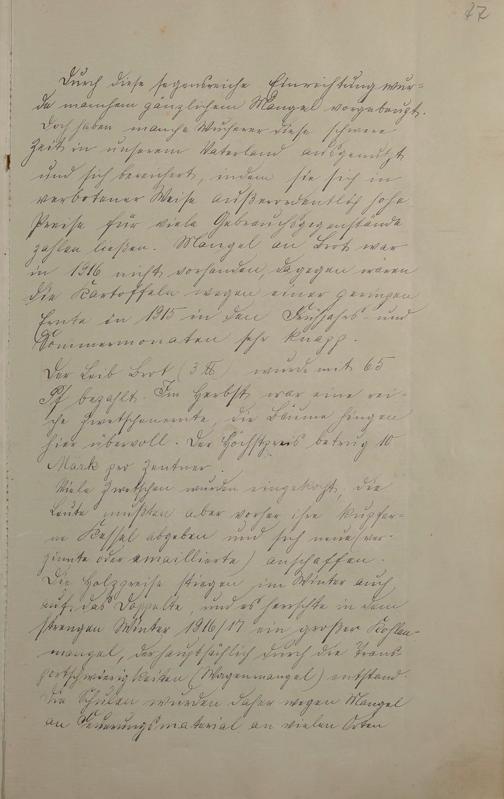 77
Durch diese segensreiche Einrichtung wur-
de manchem gänzlichem Mangel vorgebeugt.
Doch haben manche Wucherer diese schwere
Zeit in unserem Vaterland ausgenützt
und sich bereichert, indem sie sich in
verbotener Weise außerordentlich hohe
Preise für viele Gebrauchsgegenstände
zahlen ließen. Mangel an Brot war
in 1916 nicht vorhanden, dagegen waren
die Kartoffeln wegen einer geringen
Ernte in 1915 in den Frühjahrs- und
Sommermonaten sehr knapp.
Der Leib Brot (3 ℔) wurde mit 65
Pf bezahlt. Im Herbst war eine rei-
che Zwetschenernte, die Bäume hingen
hier übervoll. Der Höchstpreis betrug 10
Mark per Zentner.
Viele Zwetschen wurden eingekocht, die
Leute mußten aber vorher ihre kupfer-
ne Kessel abgeben und sich neue (ver-
zinnte oder emaillierte) anschaffen.
Die Holzpreise stiegen im Winter auch
auf das Doppelte, und es herrschte in dem
strengen Winter 1916/17 ein großer Kohlen-
mangel, der hauptsächlich durch die Trans
portschwierigkeiten (Wagenmangel) entstand.
Die Schulen wurden daher wegen Mangel
an Feuerungsmaterial an vielen Orten